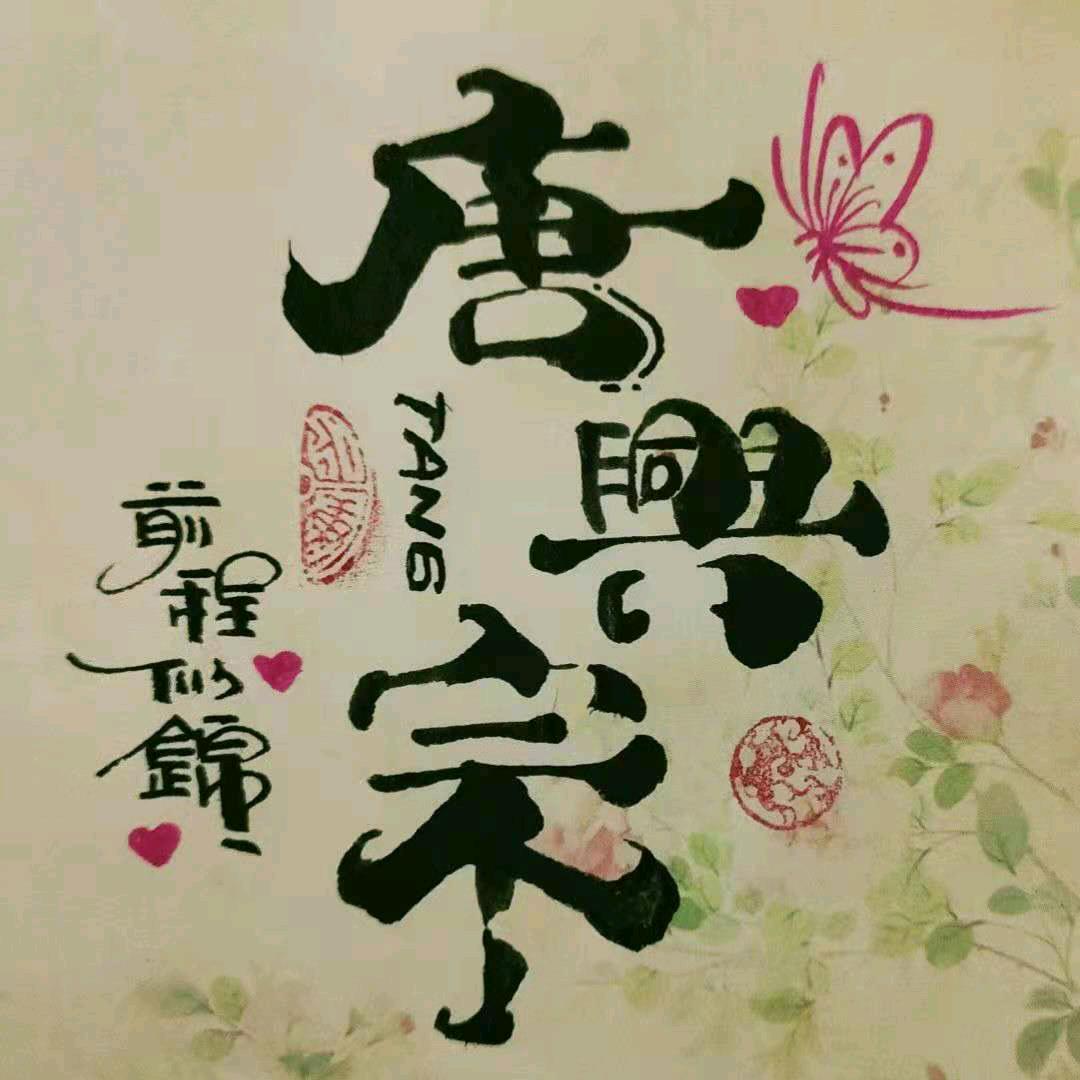 唐興宗
TANG
前程似錦